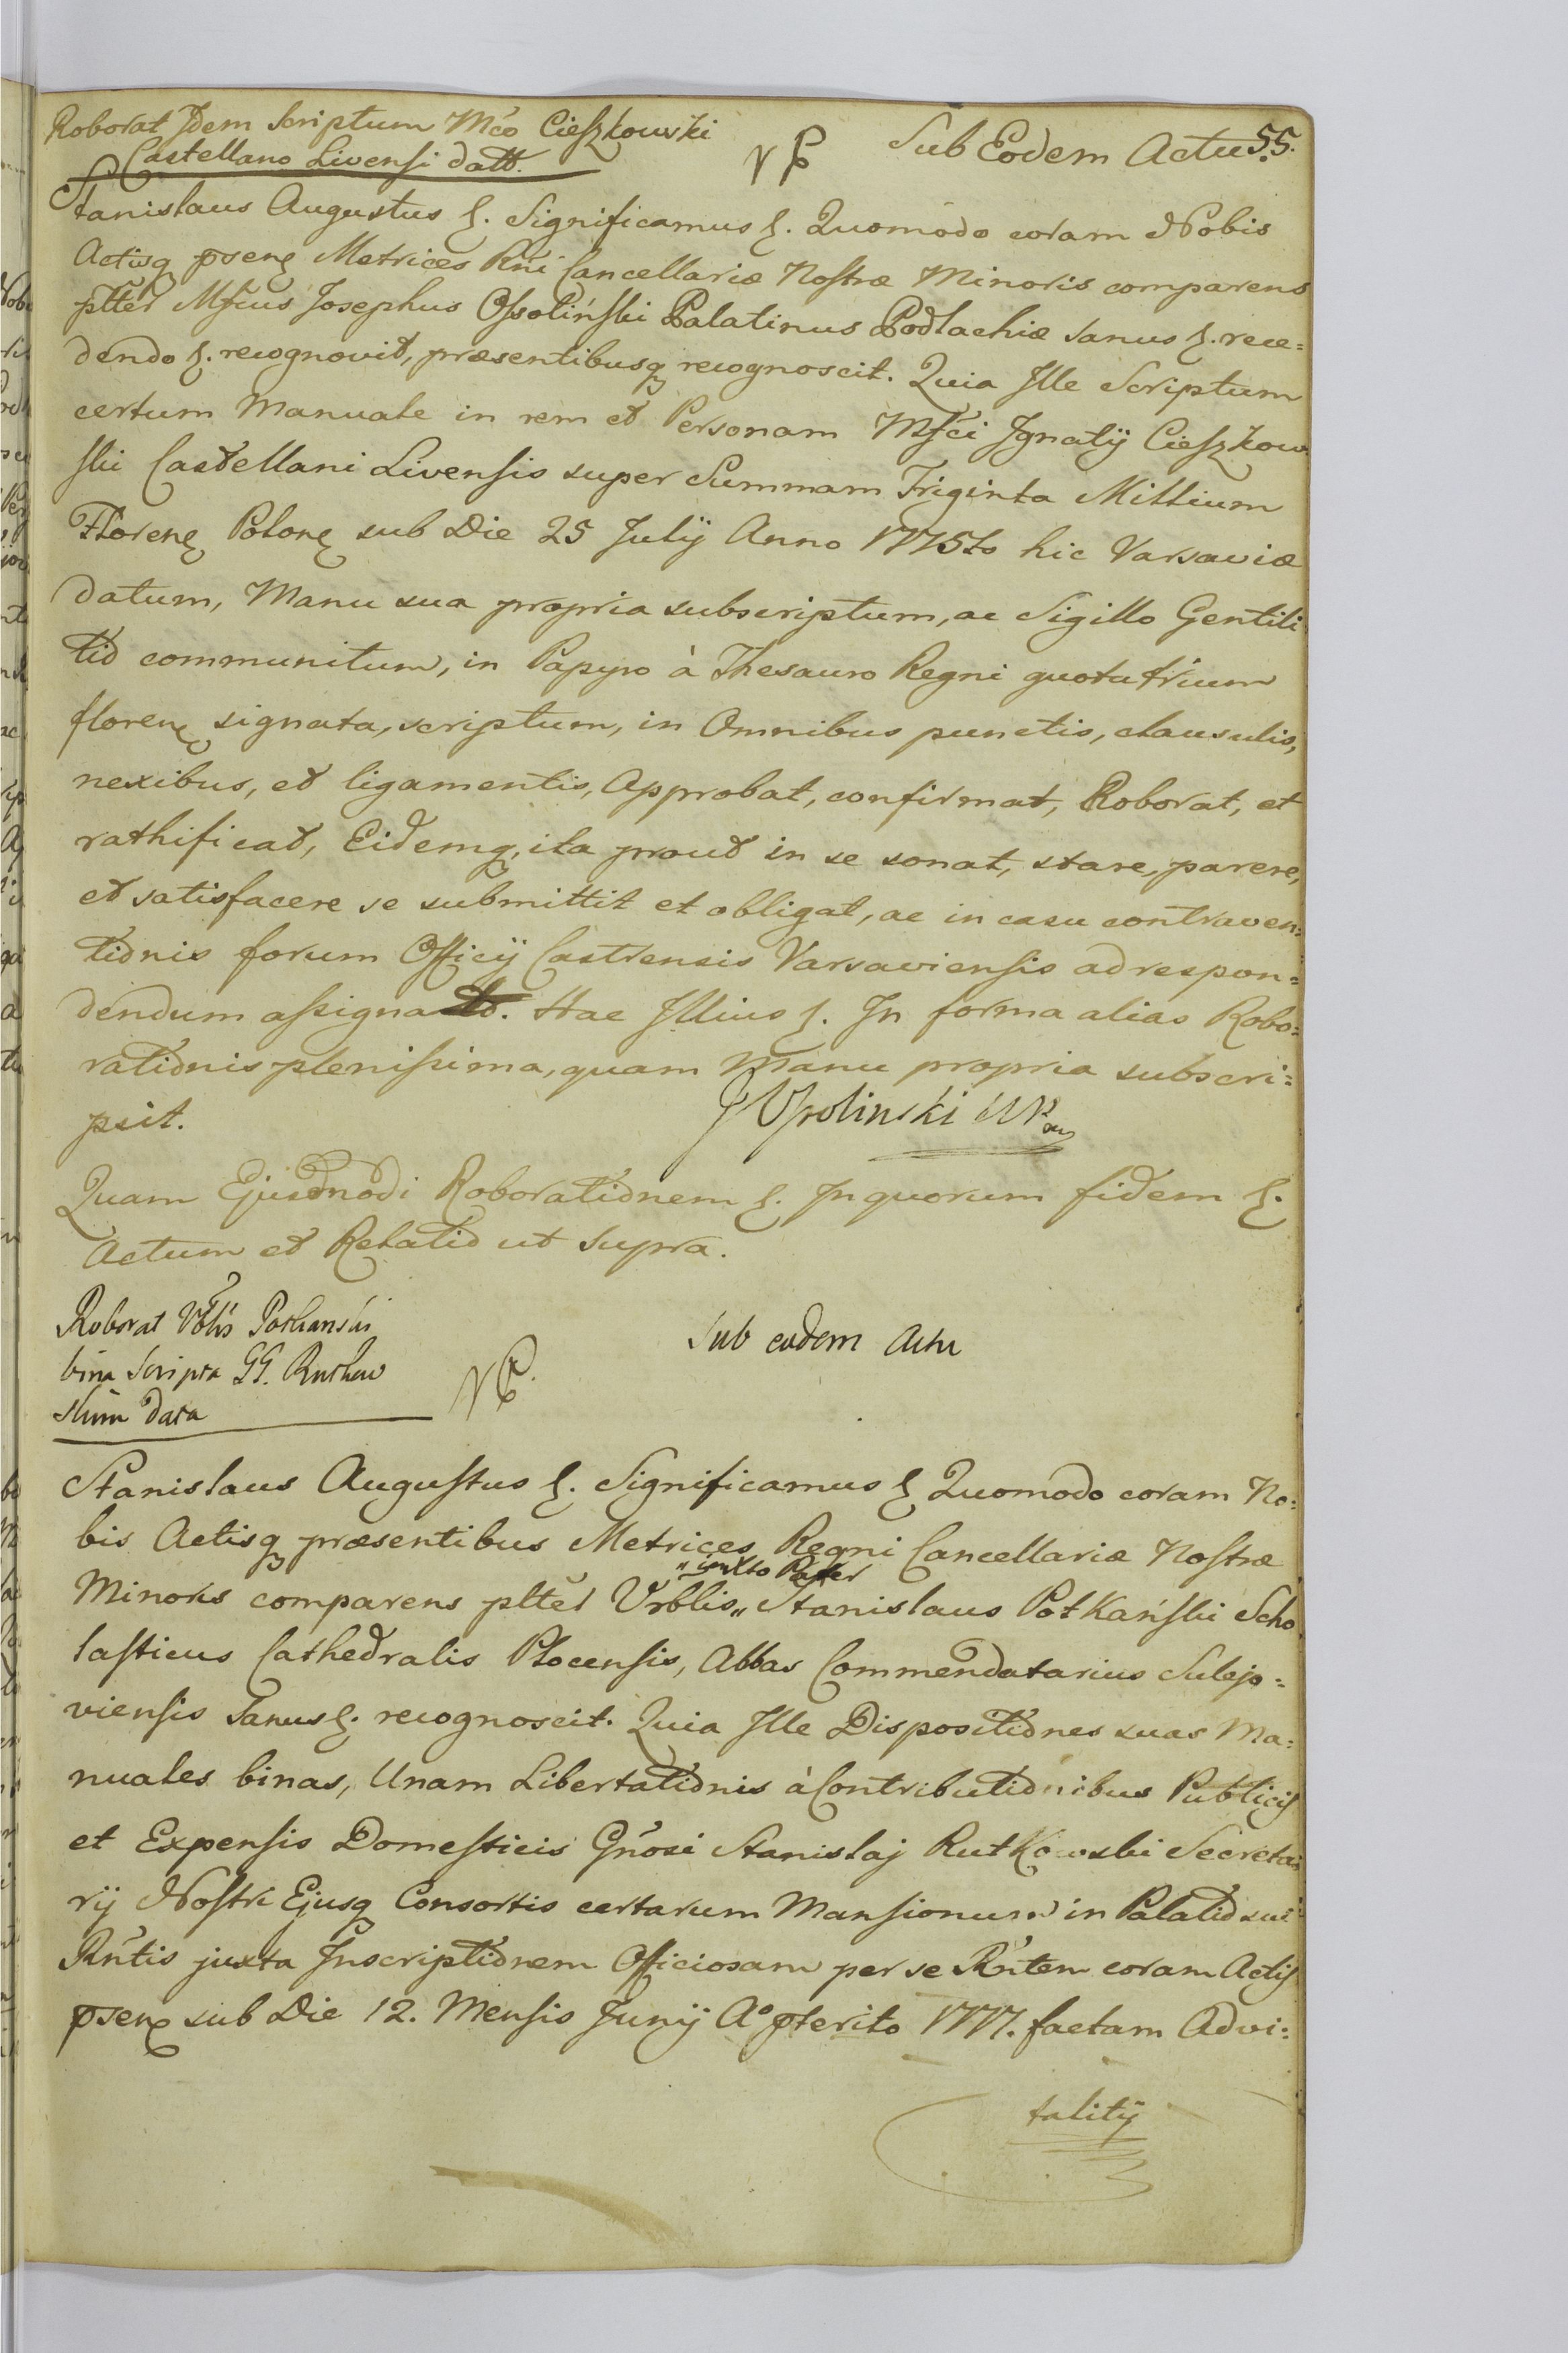 Roborat Idem Scriptum Mco Cieszkowski
Castellano Livensi datt.
Sub Eodem Actu 55.
Stanislaus Augustus &. Significamus &. Quomodo coram Nobis
Actisq psenę Metrices Rni Cancellariæ Nostræ Minoris comparens
pltter Mfcus Josephus Ossoliński Palatinus Podlachiæ Sanus &. rece=
dendo &. recognovit, præsentibusq recognoscit. Quia Ille Scriptum
certum Manuale in rem et Personam Mfci Ignatij Cieszkow
ski Castellani Livensis super Summam Triginta Millium
Florenę Polonę sub Die 25 Julij Anno 1775to hic Varsaviæ
datum, Manu sua propria subscriptum, ac Sigillo Gentili
tio communitum, in Papyro à Thesauro Regni quota trium
florenę signata, scriptum, in Omnibus punctis, clausulis,
nexibus, et ligamentis, Approbat, confirmat, Roborat, et
rathificat, Eidemq, ita prout in se sonat, stare, parere,
et satisfacere se submittit et obligat, ac in casu contraven=
tionis forum Officij Castrensis Varsaviensis ad respon=
dendum assignat. Hac Illius &. In forma alias Robo=
rationis plenissima, quam Manu propria subscri=
psit.
J Ossolinski WP
Quam Ejusdmodi Roborationem &. In quorum fidem &.
Actum et Relatio ut supra.
Roborat Vblis Potkanski
bina Scripta GG. Rutkow
skim data
Sub eodem Actu
Stanislaus Augustus &. Significamus & Quomodo coram No=
bis Actisq præsentibus Metrices Regni Cancellariæ Nostræ
Minoris comparens pltter Urblis „ Stanislaus Potkański Scho
lasticus Cathedralis Plocensis, Abbas Commendatarius Sulejo=
viensis Sanus &. recognoscit. Quia Ille Dispositiones suas Ma=
nuales binas, Unam Libertationis à Contributionibus Publicis
et Expensis Domesticis Gnosi Stanislaj Rutkowski Secreta
rij Nostri Ejusq Consortis certarum Mansionum in Palatio sui
Rntis juxta Inscriptionem Officiosam per se Rntem coram Actis
psenę sub Die 12. Mensis Junij Aº pterito 1777. factam Advi=
talitij